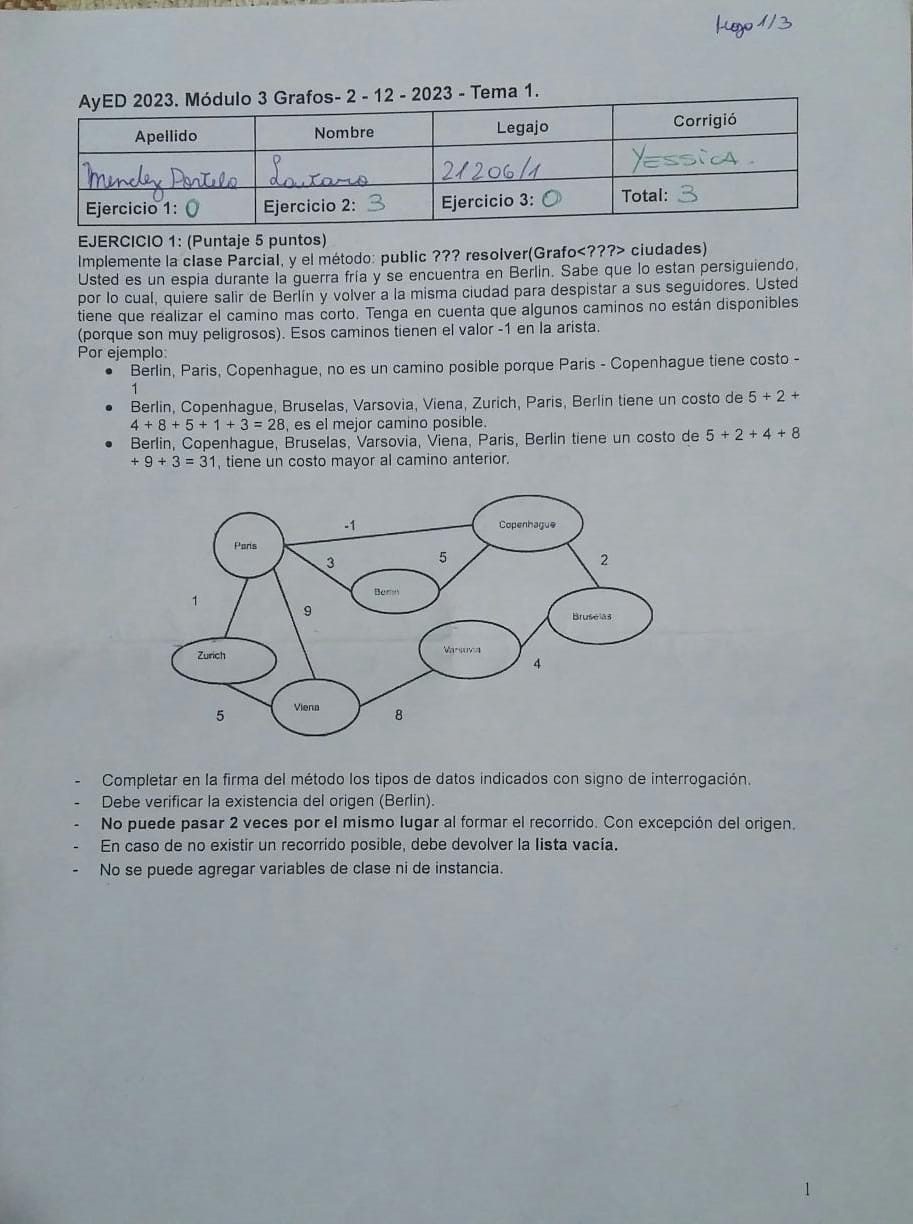 Hugo 1/3
AyED 2023. Módulo 3 Grafos- 2 - 12 - 2023 - Tema 1.
Apellido Nombre Legajo Corrigió
Mendez Portela Lautaro 21206/1 YESSICA.
Ejercicio 1: 0 Ejercicio 2: 3 Ejercicio 3: 0 Total: 3
EJERCICIO 1: (Puntaje 5 puntos)
Implemente la clase Parcial, y el método: public ??? resolver(Grafo<???> ciudades)
Usted es un espia durante la guerra fría y se encuentra en Berlin. Sabe que lo estan persiguiendo,
por lo cual, quiere salir de Berlín y volver a la misma ciudad para despistar a sus seguidores. Usted
tiene que realizar el camino mas corto. Tenga en cuenta que algunos caminos no están disponibles
(porque son muy peligrosos). Esos caminos tienen el valor -1 en la arista.
Por ejemplo:
• Berlin, Paris, Copenhague, no es un camino posible porque Paris - Copenhague tiene costo -
1
• Berlin, Copenhague, Bruselas, Varsovia, Viena, Zurich, Paris, Berlin tiene un costo de 5 + 2 +
4 + 8 + 5 + 1 + 3 = 28, es el mejor camino posible.
• Berlin, Copenhague, Bruselas, Varsovia, Viena, Paris, Berlin tiene un costo de 5 + 2 + 4 + 8
+ 9 + 3 = 31, tiene un costo mayor al camino anterior.
-1
Copenhague
Paris
3
5
2
Berlin
1
9
Bruselas
Varsovia
Zurich
4
Viena
5
8
- Completar en la firma del método los tipos de datos indicados con signo de interrogación.
- Debe verificar la existencia del origen (Berlin).
- No puede pasar 2 veces por el mismo lugar al formar el recorrido. Con excepción del origen.
- En caso de no existir un recorrido posible, debe devolver la lista vacía.
- No se puede agregar variables de clase ni de instancia.
1